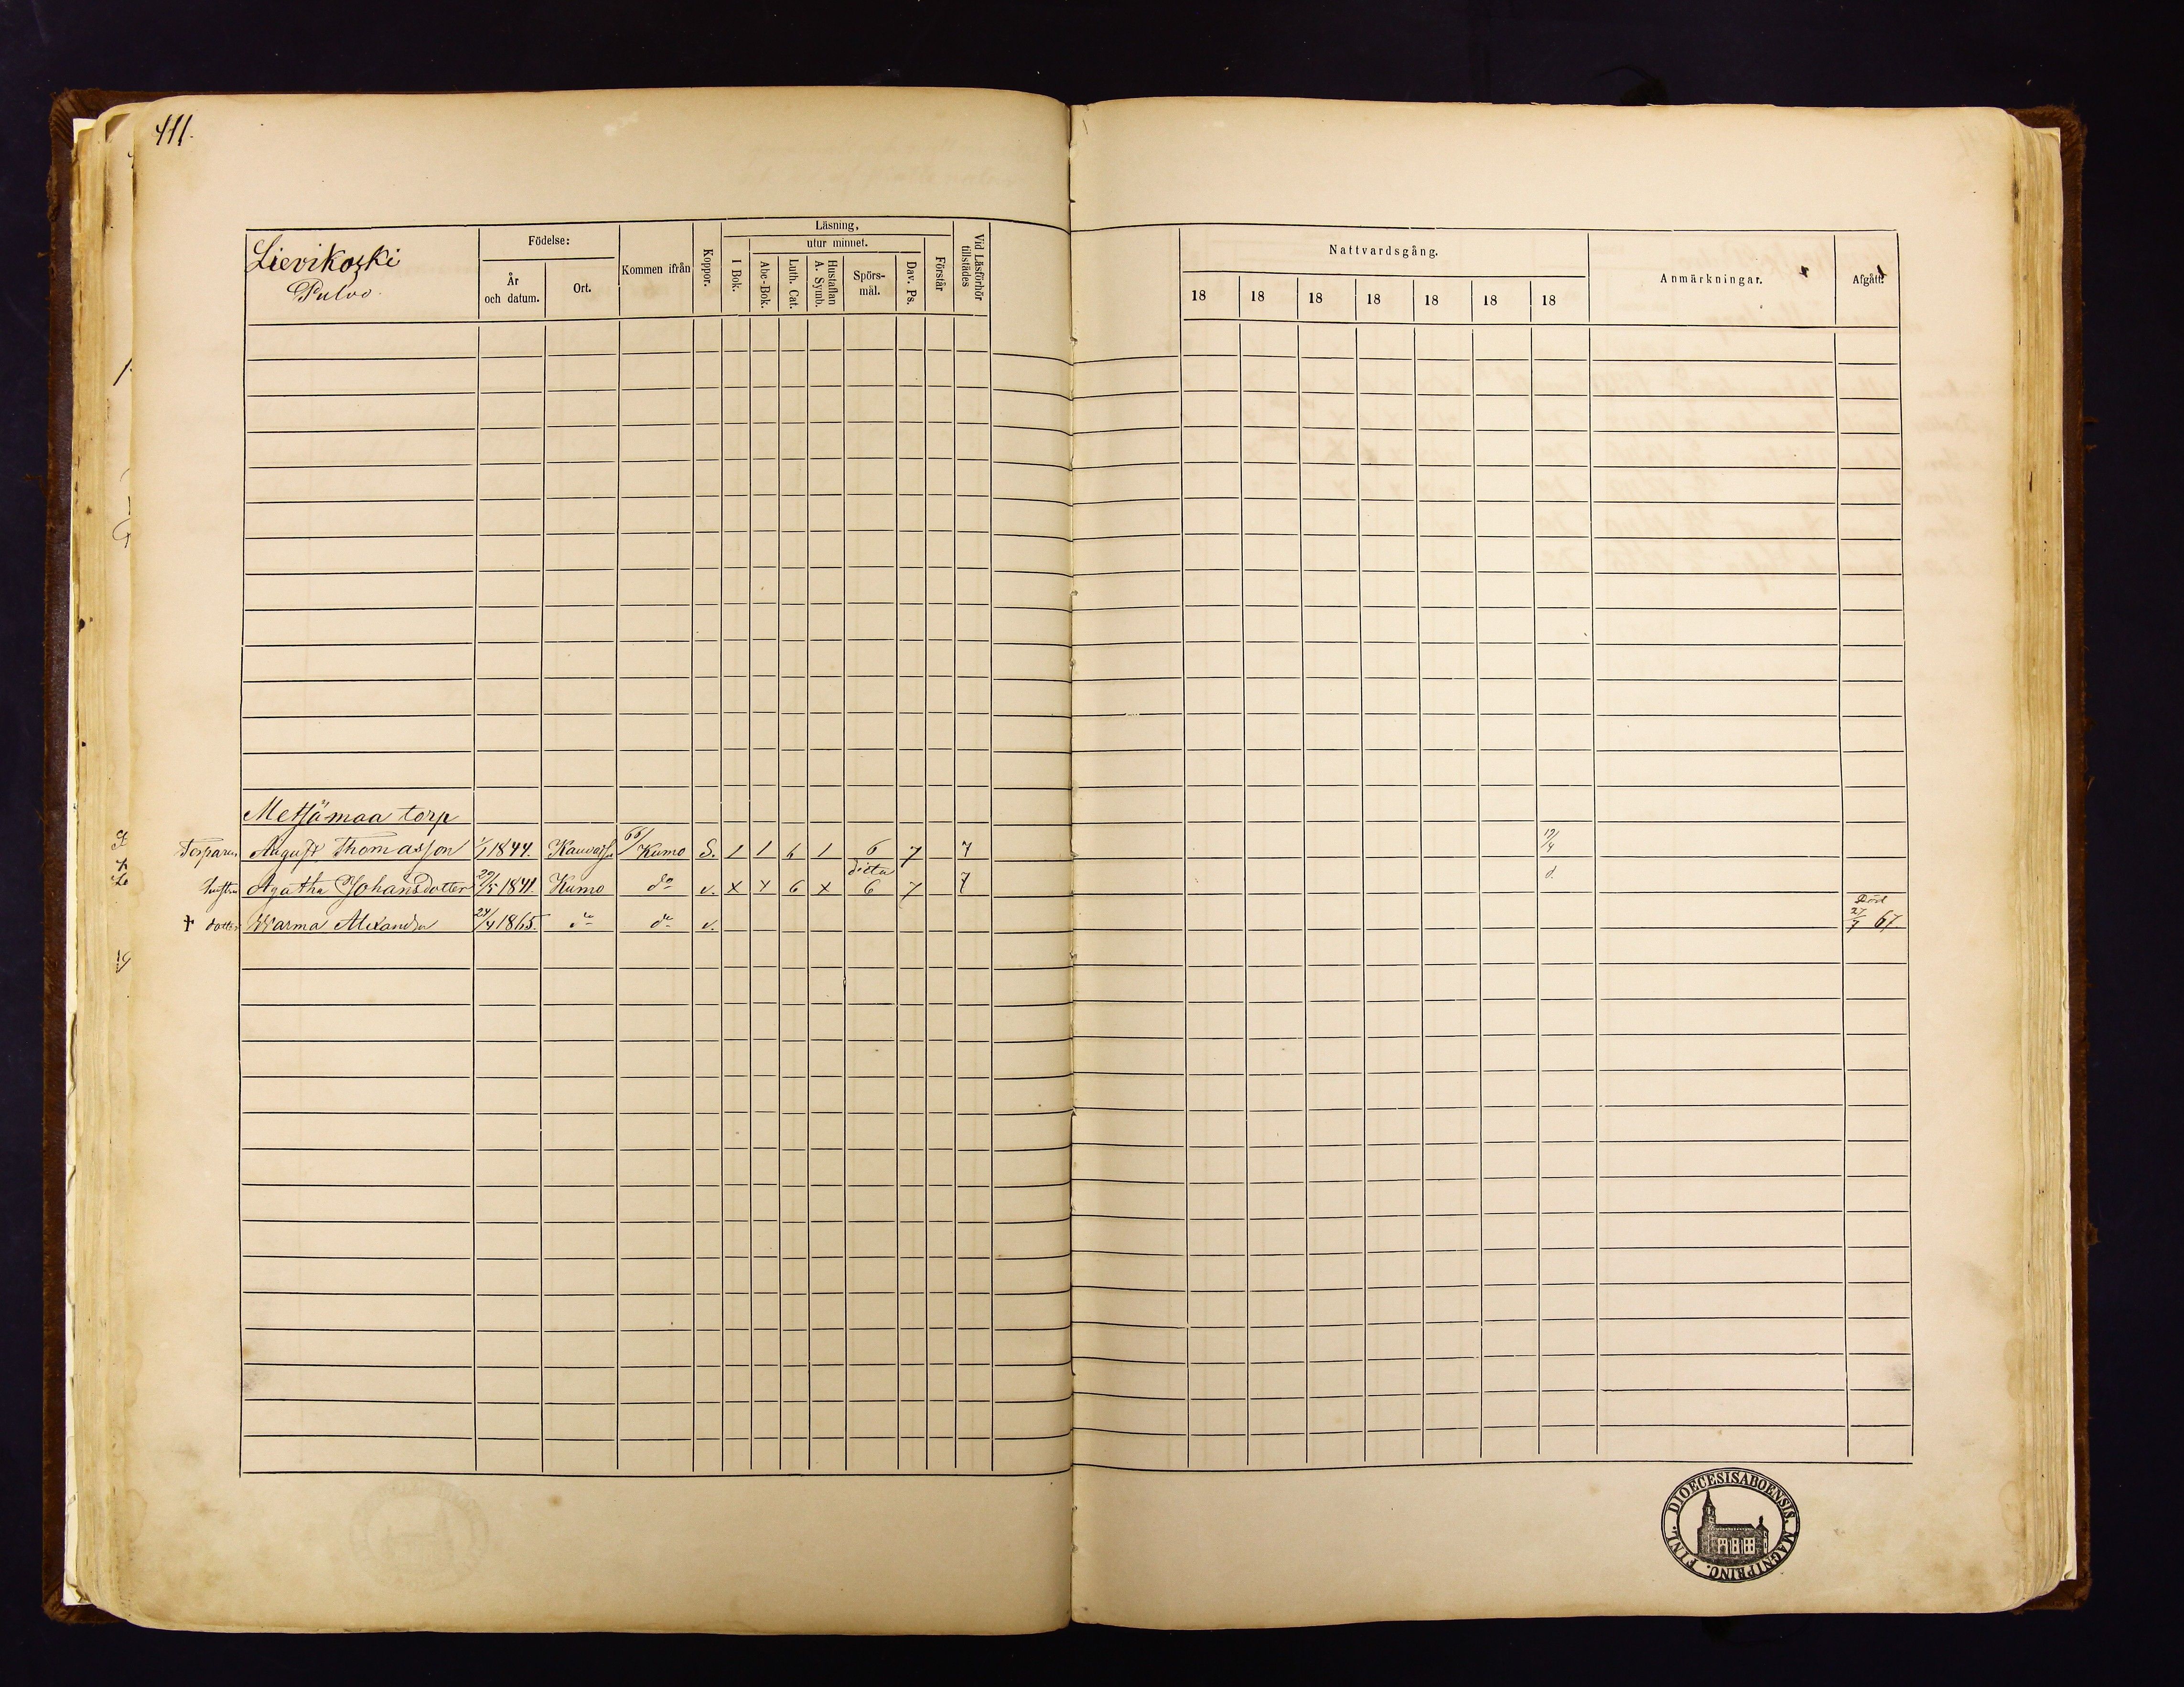 411.
Lievikoski
Pulvo.
Födelse:
År
och datum.
Ort.
Kommen ifrån
Koppor.
Läsning,
I Bok.
utur minnet.
Abc-Bok.
Luth. Cat.
Hustaflan
A. Symb.
Spörs-
mål.
Dav. Ps.
Förstår
Vid Läsförhör
tillstädes
Nattvardsgång.
18 18 18 18 18 18 18
Anmärkningar.
Afgått.
Metsämaa torp
Torparen August Thomasson 1/1 1844. 66/ Kumo S. 1 1 6 1 6 7 7 19/4
hustru Agatha Johansdotter 29/5 1841. Kumo do v. x x 6 x ditto 6 7 7 d.
† dotter Warma Alexandra 24/4 1865. do do v. Död 27/7 67.
FINL. DIOECESIS ABOENSIS. MAGNI PRINC.